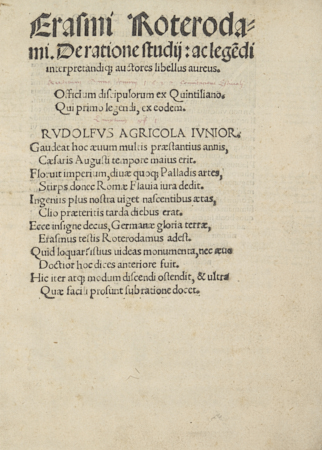 Erasmi Roteroda-
mi. De ratione studij: ac legẽdi
interpretandiq; auctores libellus aureus.
Officium discipulorum ex Quintiliano.
Qui primo legendi, ex eodem.
RVDOLFVS AGRICOLA IVNIOR.
Gaudeat hoc æuum multis præstantius annis,
Cæsaris Augusti tempore maius erit.
Floruit imperium, diuæ quoq; Palladis artes,
Stirps donec Romæ Flauia iura dedit.
Ingenijs plus nostra uiget nascentibus ætas,
Clio præteritis tarda diebus erat.
Ecce insigne decus, Germanæ gloria terræ,
Erasmus testis Roterodamus adest.
Quid loquar? istius uideas monumenta, nec æuo
Doctior hoc dices anteriore fuit.
Hic iter atq; modum discendi ostendit, & ultra
Quæ facili prosunt sub ratione docet.